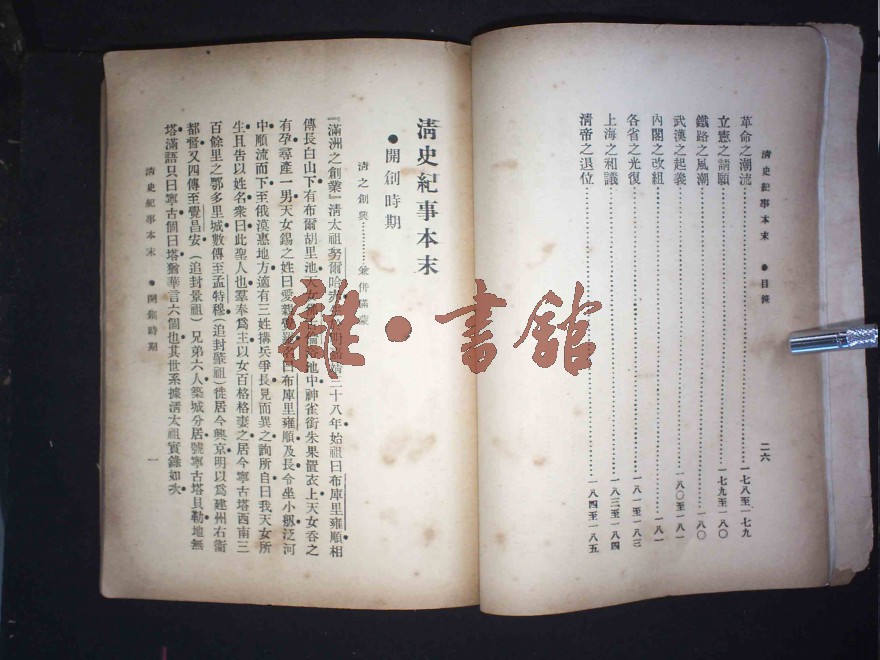 清史紀事本末 ●目錄 二六
革命之潮流 一七八至一七九
立憲之請願 一七九至一八〇
鐵路之風潮 一八〇
武漢之起義 一八〇至一八一
內閣之改組 一八一
各省之光復 一八一至一八三
上海之和議 一八三至一八四
清帝之退位 一八四至一八五
清史紀事本末
●開創時期
清之創興 兼併滿蒙
『滿洲之創業』清太祖努爾哈赤 三十八年始祖曰布庫里雍順相
傳長白山下有布爾胡里池天女 池中神雀銜朱果置衣上天女吞之
有孕尋產一男天女錫之姓曰愛新覺羅名曰布庫里雍順及長令坐小艇泛河
中順流而下至俄漠惠地方適有三姓搆兵爭長見而異之詢所自曰我天女所
生且告以姓名衆曰此聖人也羣奉爲主以女百格格妻之居今寧古塔西南三
百餘里之鄂多里城數傳至孟特穆(追封肇祖)徙居今興京明以爲建州右衞
都督又四傳至覺昌安(追封景祖)兄弟六人築城分居號寧古塔貝勒地無
塔滿語只曰寧古個曰塔猶華言六個也其世系據清太祖實錄如次
清史紀事本末 ●開創時期 一
雜·書館